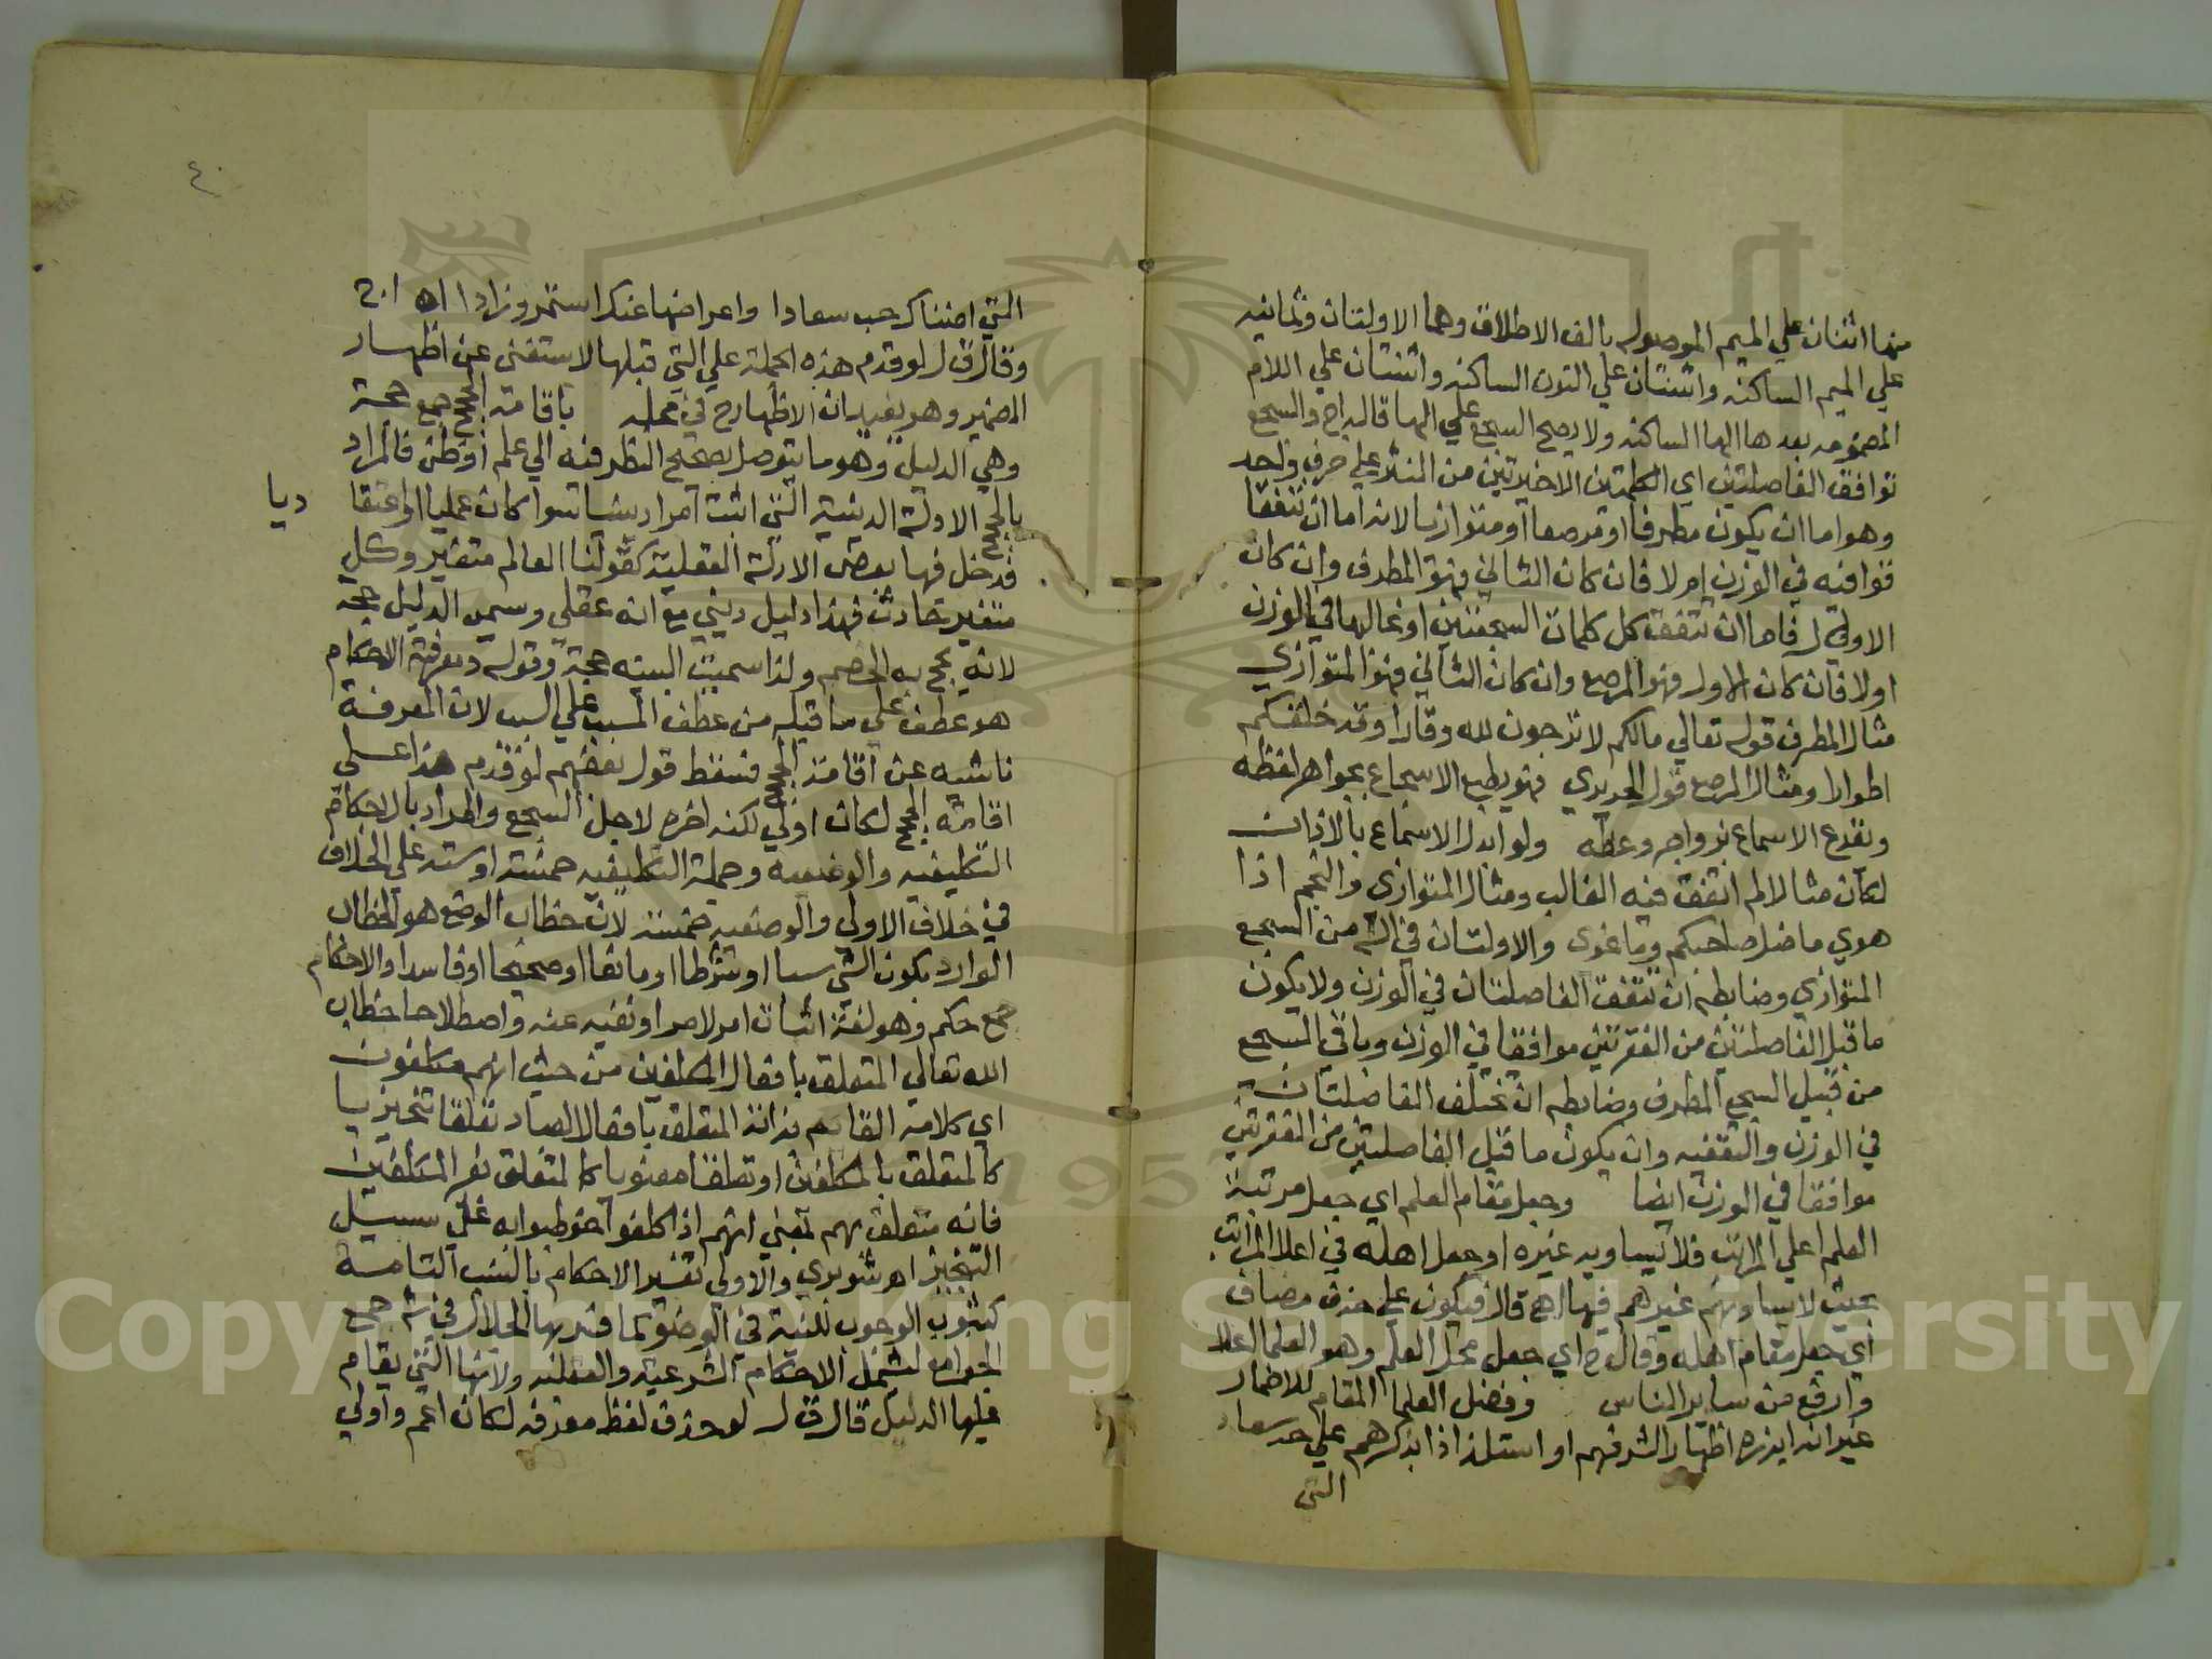 منها اثنتان علي الميم الموصوله بالف الاطلاق وهما الاولتان وثمانيه
علي الميم الساكنه واثنتان علي النون الساكنه واثنتان علي اللام
المضمومه بعدها الها الساكنه ولا يصح السجع علي الها قاله اج والسجع
توافق الفاصلتين اي الكلمتين الاخيرتين من النثر علي حرف واحد
وهو اما ان يكون مطرفا او مرصعا او متوازيا لانه اما ان تتفقا
فوافيه في الوزن ام لا فان كان الثاني فهو المطرف وان كان
الاول فاما ان تتفق كل كلمات السجعتين او غالبها في الوزن
اولا فان كان الاول فهو المرصع وان كان الثاني فهو المتوازي
مثال المطرف قوله تعالي مالكم لا ترجون لله وقارا وقد خلقكم
اطوارا ومثال المرصع قول الحريري فهو يطبع الاسجاع بجواهر لفظه
ويقرع الاسماع بزواجر وعظه ولو ابدل الاسماع بالاذان
لكان مثالا لما اتفق فيه الغالب ومثال المتوازي والنجم اذا
هوي ما ضل صاحبكم وما غوي والاولتان في الش من السجع
المتوازي وضابطه ان تتفق الفاصلتان في الوزن ولا يكون
ما قبل الفاصلتين من الفقرتين موافقا في الوزن وباقي السجع
من قبيل السجع المطرف وضابطه ان تختلف الفاصلتان
في الوزن والتقفيه وان يكون ما قبل الفاصلتين من الفقرتين
موافقا في الوزن ايضا وجعل مقام العلم اي جعل مرتبة
العلم اعلي المراتب فلا يساويه غيره او جعل اهله في اعلا المراتب
بحيث لا يساويهم غيرهم فيها اهج قال ف فيكون علي حذف مضاف
اي جعل مقام اهله وقال ح اي جعل محل العلم وهو العلما اعلا
وارفع من ساير الناس وفضل العلما المقام للاضمار
غير انه ابرزه اظهارا لشرفهم او استلذاذا بذكرهم علي حد سعاد
التي
٤٠
التي اضناك حب سعادا واعراضها عنك استمر وزادا اه اج
وقال ق ل لو قدم هذه الجملة علي التي قبلها لاستغني عن اظهار
الضمير وهو يفيد ان الاظهار ح في محله باقامة الحجج جمع حجة
وهي الدليل وهو ما يتوصل بصحيح النظر فيه الي علم او ظن فالمراد
بالحجج الادلة الدينية التي اثبت امرا دينيا سوا كان عمليا او اعتقا
ديا
فدخل فيها بعض الادلة العقلية كقولنا العالم متغير وكل
متغير حادث فهذا دليل ديني مع انه عقلي وسمي الدليل حجه
لانه يحج به الخصم ولذا سميت البينه حجة وقوله ومعرفة الاحكام
هو عطف علي ما قبله من عطف المسبب علي السبب لان المعرفة
ناشيه عن اقامة الحجج فسقط قول بعضهم لو قدم هذا علي
اقامة الحجج لكان اولي لكنه اخره لاجل السجع والمراد بالاحكام
التكليفيه والوضعيه وجملة التكليفيه خمسة او سته علي الخلاف
في خلاف الاولي والوضعيه خمسة لان خطاب الوضع هو الخطاب
الوارد بكون الشي سببا او شرطا او مانعا او صحيحا او فاسدا والاحكام
جمع حكم وهو لغة اثبات امر لامر او نفيه عنه واصطلاحا خطاب
الله تعالي المتعلق بافعال المكلفين من حيث انهم مكلفون
اي كلامه القايم بذاته المتعلق بافعال العباد تعلقا تنجيزيا
كالمتعلق بالمكلفين او تعلقا معنويا كالمتعلق بغير المكلفين
فانه متعلق بهم بمعني انهم اذا كلفوا خوطبوا به علي سبيل
التنجيز اهر شوبري والاولي تفسير الاحكام بالنسب التامة
كثبوت الوجوب للنية في الوضو كما فسر بها الجلال في ش جمع
الجوامع لتشمل الاحكام الشرعية والعقليه ولانها التي يقام
عليها الدليل قال ق ل لو حذف لفظ معرفه لكان اعم واولي
Copyright © King Saud University
1957